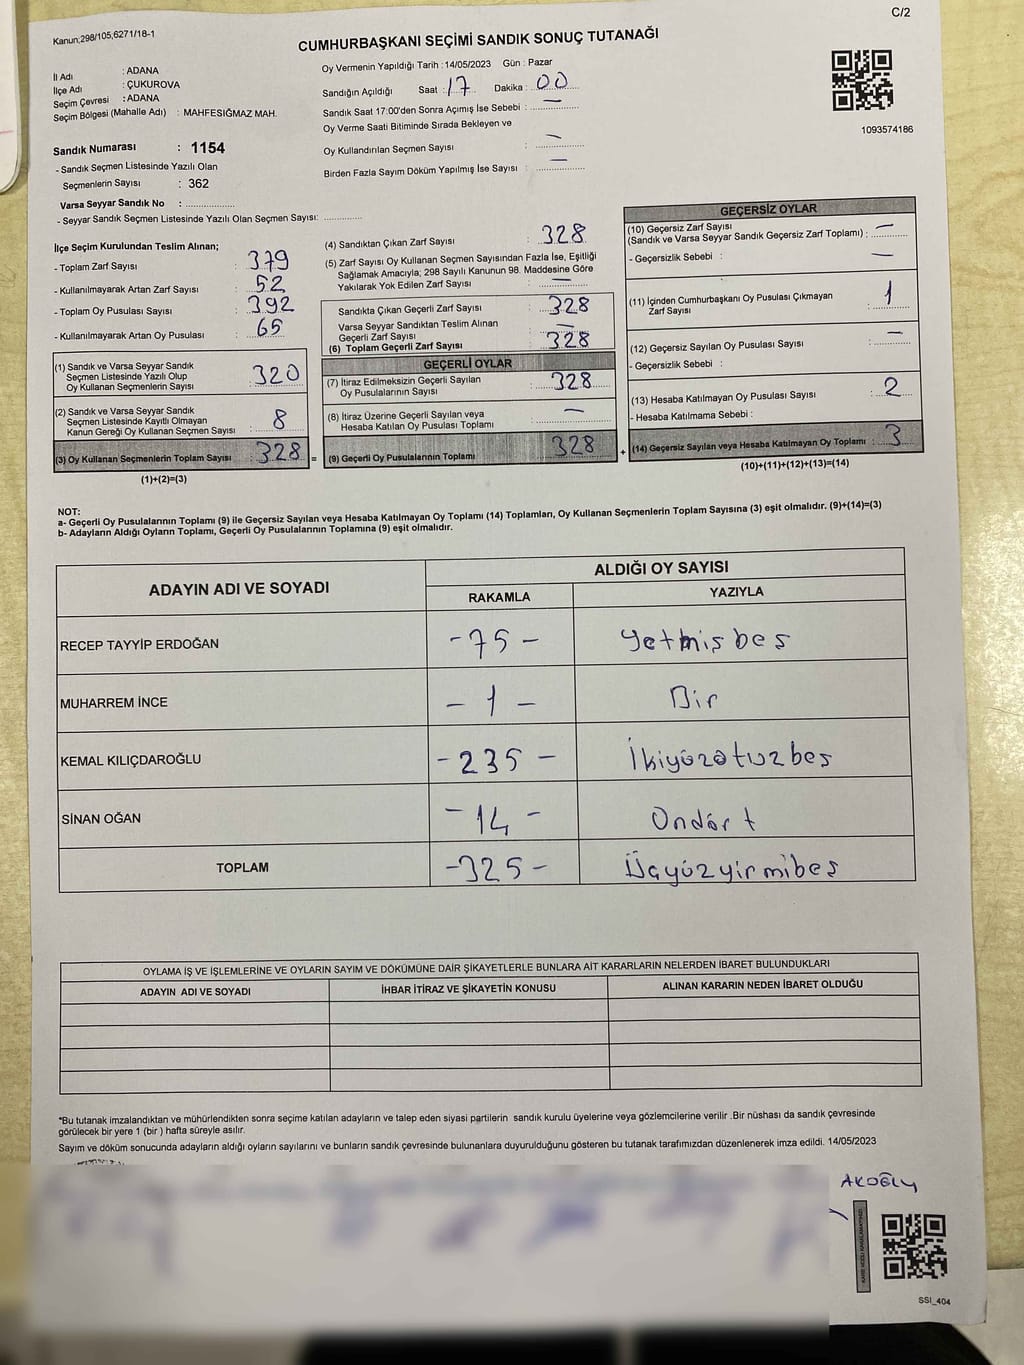 C/2
Kanun;298/105,6271/18-1
CUMHURBAŞKANI SEÇİMİ SANDIK SONUÇ TUTANAĞI
İl Adı : ADANA
İlçe Adı : ÇUKUROVA
Seçim Çevresi : ADANA
Seçim Bölgesi (Mahalle Adı) : MAHFESIĞMAZ MAH.
Sandık Numarası : 1154
- Sandık Seçmen Listesinde Yazılı Olan
Seçmenlerin Sayısı : 362
Varsa Seyyar Sandık No : ..................
- Seyyar Sandık Seçmen Listesinde Yazılı Olan Seçmen Sayısı: ..............
Oy Vermenin Yapıldığı Tarih : 14/05/2023 Gün : Pazar
Sandığın Açıldığı Saat : 17 Dakika : 00
Sandık Saat 17:00'den Sonra Açımış İse Sebebi : —
Oy Verme Saati Bitiminde Sırada Bekleyen ve
Oy Kullandırılan Seçmen Sayısı : —
Birden Fazla Sayım Döküm Yapılmış İse Sayısı : —
1093574186
İlçe Seçim Kurulundan Teslim Alınan;
- Toplam Zarf Sayısı : 379
- Kullanılmayarak Artan Zarf Sayısı : 52
- Toplam Oy Pusulası Sayısı : 392
- Kullanılmayarak Artan Oy Pusulası : 65
(1) Sandık ve Varsa Seyyar Sandık
Seçmen Listesinde Yazılı Olup
Oy Kullanan Seçmenlerin Sayısı : 320
(2) Sandık ve Varsa Seyyar Sandık
Seçmen Listesinde Kayıtlı Olmayan
Kanun Gereği Oy Kullanan Seçmen Sayısı : 8
(3) Oy Kullanan Seçmenlerin Toplam Sayısı : 328 =
(1)+(2)=(3)
(4) Sandıktan Çıkan Zarf Sayısı : 328
(5) Zarf Sayısı Oy Kullanan Seçmen Sayısından Fazla İse, Eşitliği
Sağlamak Amacıyla; 298 Sayılı Kanunun 98. Maddesine Göre
Yakılarak Yok Edilen Zarf Sayısı : —
Sandıkta Çıkan Geçerli Zarf Sayısı : 328
Varsa Seyyar Sandıktan Teslim Alınan
Geçerli Zarf Sayısı : —
(6) Toplam Geçerli Zarf Sayısı : 328
GEÇERLİ OYLAR
(7) İtiraz Edilmeksizin Geçerli Sayılan
Oy Pusulalarının Sayısı : 328
(8) İtiraz Üzerine Geçerli Sayılan veya
Hesaba Katılan Oy Pusulası Toplamı : —
(9) Geçerli Oy Pusulalarının Toplamı 328 +
GEÇERSİZ OYLAR
(10) Geçersiz Zarf Sayısı
(Sandık ve Varsa Seyyar Sandık Geçersiz Zarf Toplamı) : —
- Geçersizlik Sebebi : —
(11) İçinden Cumhurbaşkanı Oy Pusulası Çıkmayan
Zarf Sayısı : 1
(12) Geçersiz Sayılan Oy Pusulası Sayısı : —
- Geçersizlik Sebebi :
(13) Hesaba Katılmayan Oy Pusulası Sayısı : 2
- Hesaba Katılmama Sebebi :
(14) Geçersiz Sayılan veya Hesaba Katılmayan Oy Toplamı : 3
(10)+(11)+(12)+(13)=(14)
NOT:
a- Geçerli Oy Pusulalarının Toplamı (9) ile Geçersiz Sayılan veya Hesaba Katılmayan Oy Toplamı (14) Toplamları, Oy Kullanan Seçmenlerin Toplam Sayısına (3) eşit olmalıdır. (9)+(14)=(3)
b- Adayların Aldığı Oyların Toplamı, Geçerli Oy Pusulalarının Toplamına (9) eşit olmalıdır.
ADAYIN ADI VE SOYADI ALDIĞI OY SAYISI
RAKAMLA YAZIYLA
RECEP TAYYİP ERDOĞAN -75- Yetmişbeş
MUHARREM İNCE -1- Bir
KEMAL KILIÇDAROĞLU -235- İkiyüzotuzbeş
SİNAN OĞAN -14- Ondört
TOPLAM -325- Üçyüzyirmibeş
OYLAMA İŞ VE İŞLEMLERİNE VE OYLARIN SAYIM VE DÖKÜMÜNE DAİR ŞİKAYETLERLE BUNLARA AİT KARARLARIN NELERDEN İBARET BULUNDUKLARI
ADAYIN ADI VE SOYADI İHBAR İTİRAZ VE ŞİKAYETİN KONUSU ALINAN KARARIN NEDEN İBARET OLDUĞU
*Bu tutanak imzalandıktan ve mühürlendikten sonra seçime katılan adayların ve talep eden siyasi partilerin sandık kurulu üyelerine veya gözlemcilerine verilir .Bir nüshası da sandık çevresinde
görülecek bir yere 1 (bir ) hafta süreyle asılır.
Sayım ve döküm sonucunda adayların aldığı oyların sayılarını ve bunların sandık çevresinde bulunanlara duyurulduğunu gösteren bu tutanak tarafımızdan düzenlenerek imza edildi. 14/05/2023
SSI_404